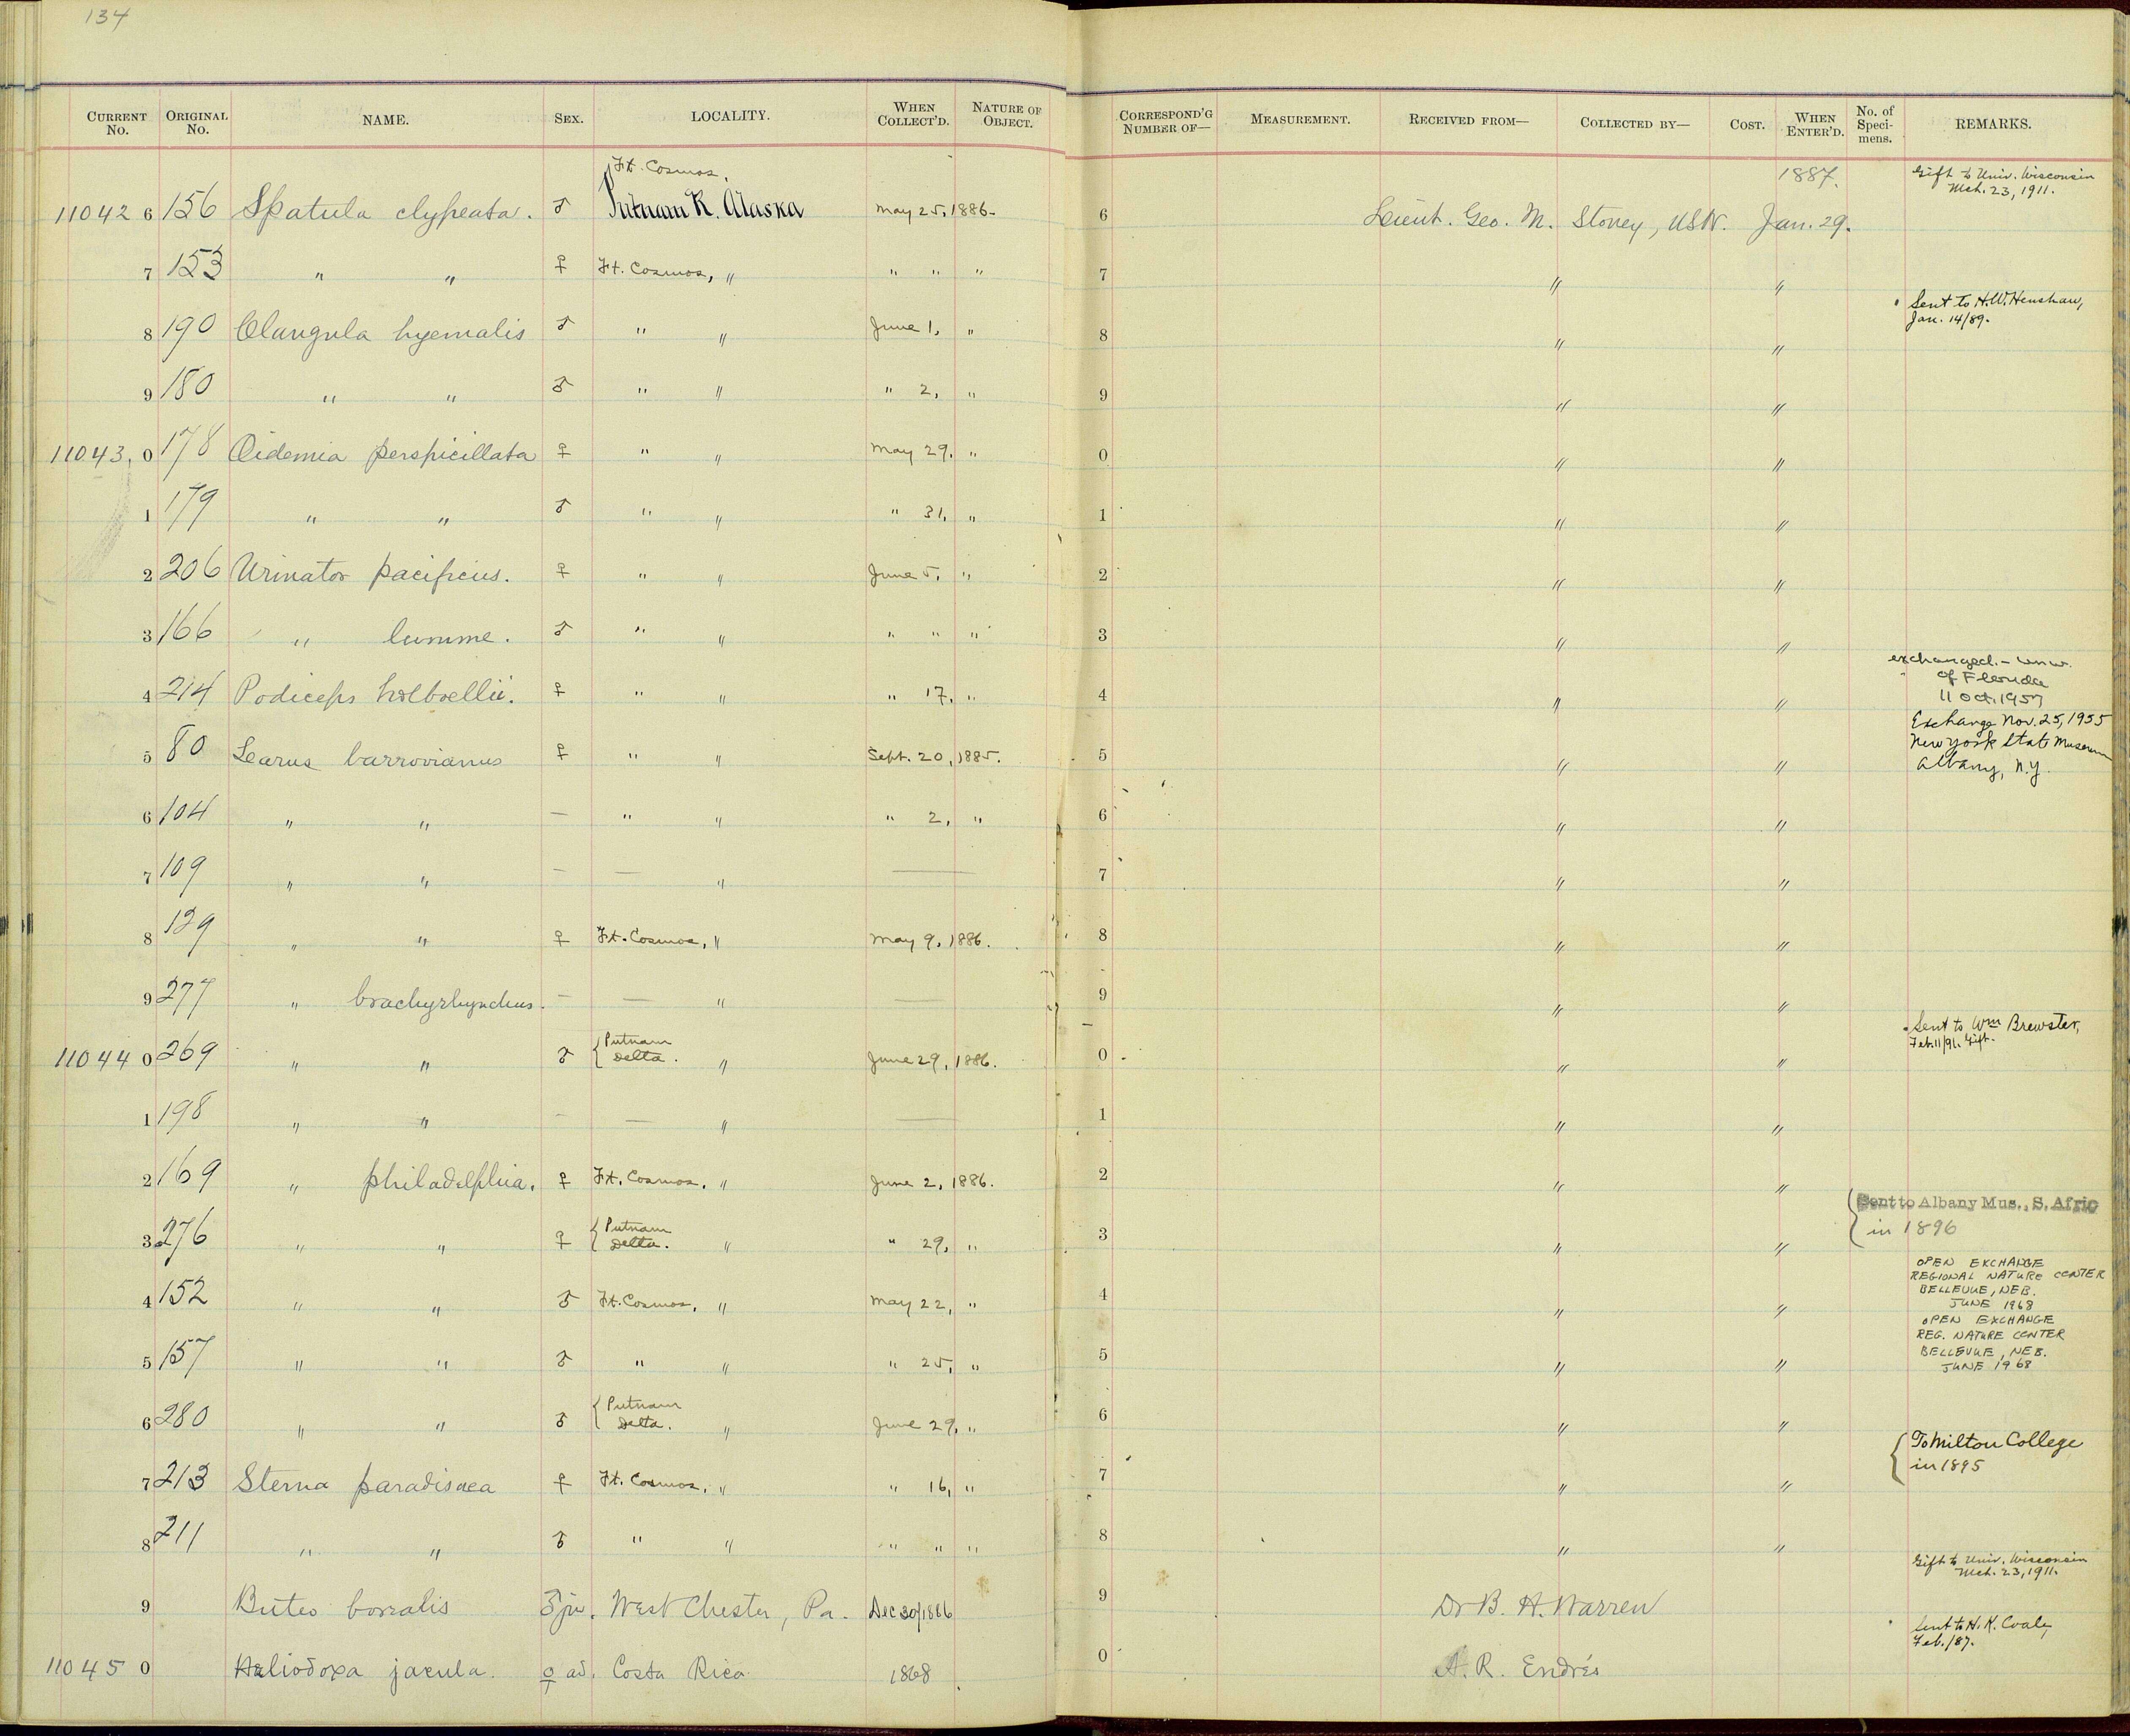 134
CURRENT No. ORIGINAL No. NAME. SEX. LOCALITY. WHEN COLLECT'D. NATURE OF OBJECT. CORRESPOND'G NUMBER OF— MEASUREMENT. RECEIVED FROM— COLLECTED BY— COST. WHEN ENTER'D. No. of Specimens. REMARKS.
Ft. Cosmos, 1887. Gift to Univ. Wisconsin Mch. 23, 1911.
11042 6 156 Spatula clypeata. ♂ Putnam R. Alaska May 25, 1886. 6 Lieut. Geo. M. Stoney, USN. Jan. 29.
7 153 " " ♀ Ft. Cosmos, " " " " 7 " "
Sent to H.W. Henshaw, Jan. 14/89.
8 190 Clangula hyemalis ♂ " " June 1, " 8 " "
9 180 " " ♂ " " " 2, " 9 " "
11043 0 178 Oidemia perspicillata ♀ " " May 29, " 0 " "
1 179 " " ♂ " " " 31, " 1 " "
2 206 Urinator pacificus. ♀ " " June 5, " 2 " "
3 166 " lumme. ♂ " " " " " 3 " "
4 214 Podiceps holboellii. ♀ " " " 17, " 4 " " exchanged - Univ. of Florida 11 Oct. 1957
5 80 Larus barrovianus ♀ " " Sept. 20, 1885. 5 " " Exchange Nov. 25, 1955 New York State Museum Albany, N.Y.
6 104 " " — " " " 2, " 6 " "
7 109 " " — — " — 7 " "
8 129 " " ♀ Ft. Cosmos, " May 9, 1886. 8 " "
9 277 " brachyrhynchus. — — " — 9 " "
Sent to Wm Brewster, Feb. 11/91. Gift.
11044 0 269 " " ♂ { Putnam Delta. " June 29, 1886. 0 " "
1 198 " " — — " — 1 " "
2 169 " philadelphia. ♀ Ft. Cosmos, " June 2, 1886. 2 " "
3 276 " " ♀ { Putnam Delta. " " 29, " 3 " " { Sent to Albany Mus., S. Afric in 1896
4 152 " " ♂ Ft. Cosmos, " May 22, " 4 " " OPEN EXCHANGE REGIONAL NATURE CENTER BELLEVUE, NEB. JUNE 1968
5 157 " " ♂ " " " 25, " 5 " " OPEN EXCHANGE REG. NATURE CENTER BELLEVUE, NEB. JUNE 1968
6 280 " " ♂ { Putnam Delta. " June 29, " 6 " "
7 213 Sterna paradisaea ♀ Ft. Cosmos, " " 16, " 7 " " { To Milton College in 1895
8 211 " " ♂ " " " " " 8 " "
Gift to Univ. Wisconsin Mch. 23, 1911.
9 Buteo borealis ♂ juv. West Chester, Pa. Dec 30/1886 9 Dr B. H. Warren
Sent to H. K. Coale, Feb. /87.
11045 0 Heliodoxa jacula. ♀ ad. Costa Rica 1868 0 A. R. Endrés